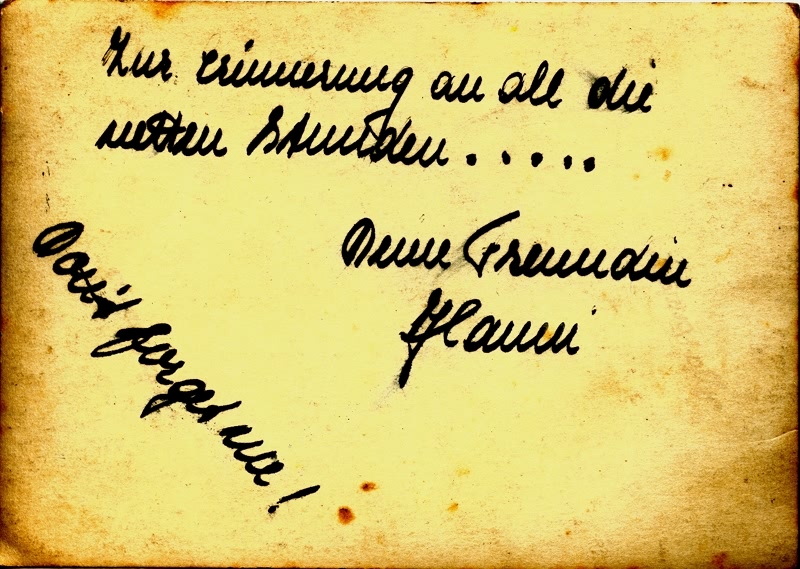 Zur erinnerung an all die
netten Stunden.....
Deine Freundin
Hanni
Don't forget me!